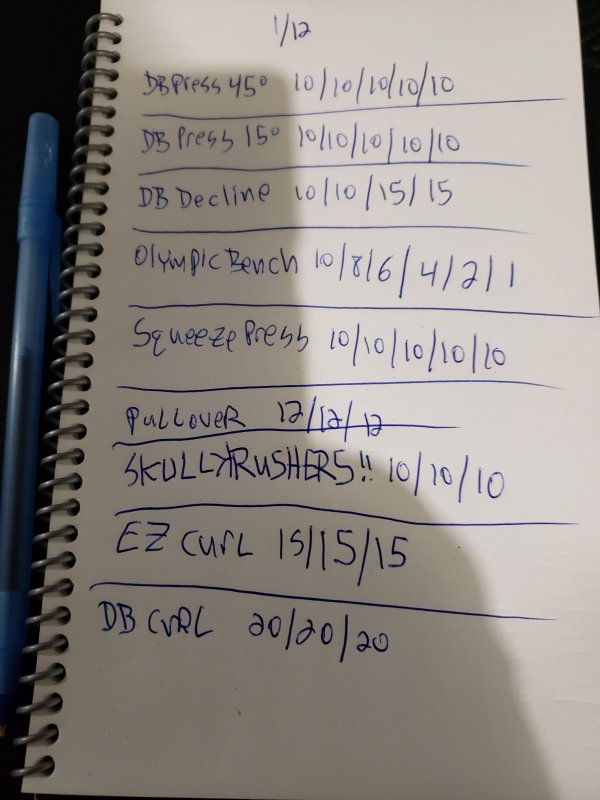 1/12
DB Press 45° 10/10/10/10/10
DB Press 15° 10/10/10/10/10
DB Decline 10/10/15/15
Olympic Bench 10/8/6/4/2/1
Squeeze Press 10/10/10/10/10
PULLOVER 12/12/12
SKULLKRUSHERS!! 10/10/10
EZ CURL 15/15/15
DB CURL 20/20/20